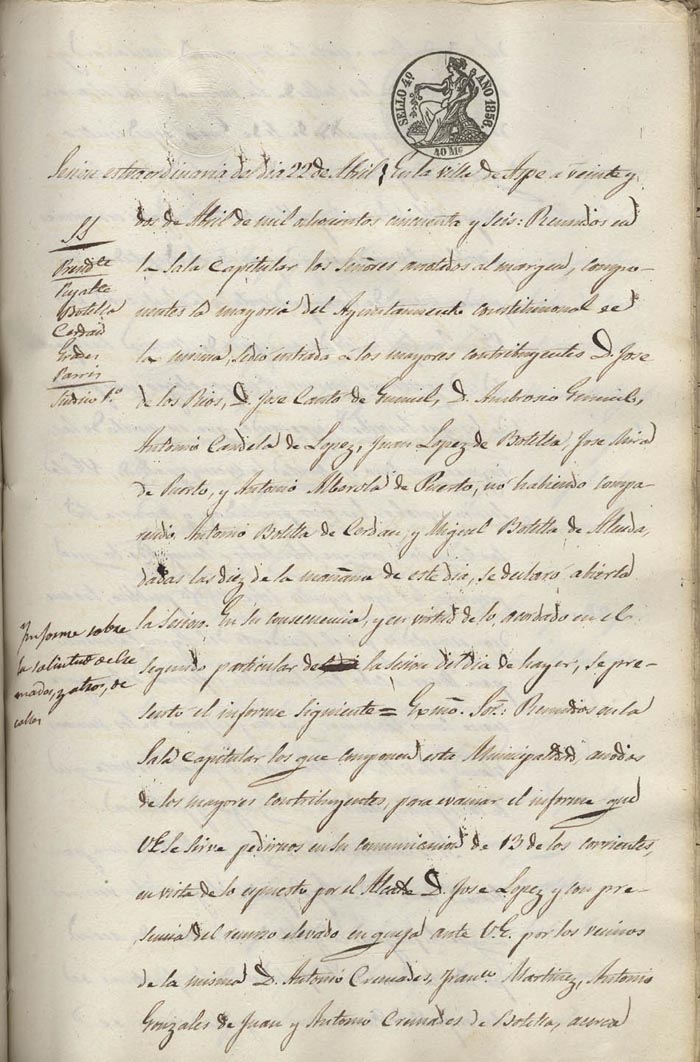 SELLO 4º AÑO 1856.
40 Ms
Sesion extraordinaria del dia 22 de Abril; En la villa de Aspe a veinte y
dos de Abril de mil ochocientos cincuenta y seis: Reunidos en
la Sala Capitular los Señores anotados al margen, compo-
nentes la mayoria del Ayuntamiento constitucional de
la misma, se dio entrada a los mayores contribuyentes D. Jose
de los Rios, D. Jose Canto de Gumiel, D. Ambrosio Gumiel,
Antonio Candela de Lopez, Juan Lopez de Botella, Jose Mira
de Puerto, y Antonio Alberola de Puerto, no habiendo compa-
recido Antonio Botella de Cerdan, y Miguel Botella de Almida,
dadas las diez de la mañana de este dia, se declaró abierta
la Sesion. En su consecuencia, y en virtud de lo acordado en el
segundo particular de la sesion del dia de hayer, se pre-
sentó el informe siguiente = Exmo. Sor: Reunidos en la
Sala Capitular los que componen esta Municipalidad, asodos
de los mayores contribuyentes, para evacuar el informe que
V.E. se sirve pedirnos en su comunicacion de 13 de los corrientes,
en vista de lo espuesto por el Alcalde D. Jose Lopez y con pre-
sencia del recurso elevado en queja ante V.E. por los vecinos
de la misma D. Antonio Cremades, Franco Martinez, Antonio
Gonzales de Juan y Antonio Cremades de Botella, acerca
SS
Presidte
Pujalte
Botella
Cerdan
Erades
Pavia
Sindico 1º
Informe sobre
la solicitud de Cre
mades, y otros, de